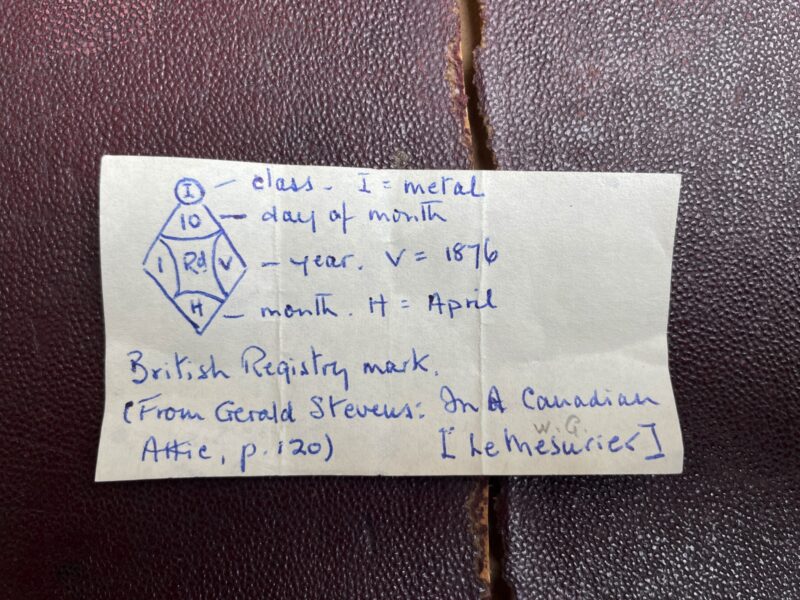 I – class. I = metal
10 – day of month
1 Rd V – year. V = 1876
H – month. H = April
British Registry mark.
(From Gerald Stevens: In A Canadian
Attic, p. 120) [W.G. LeMesurier]